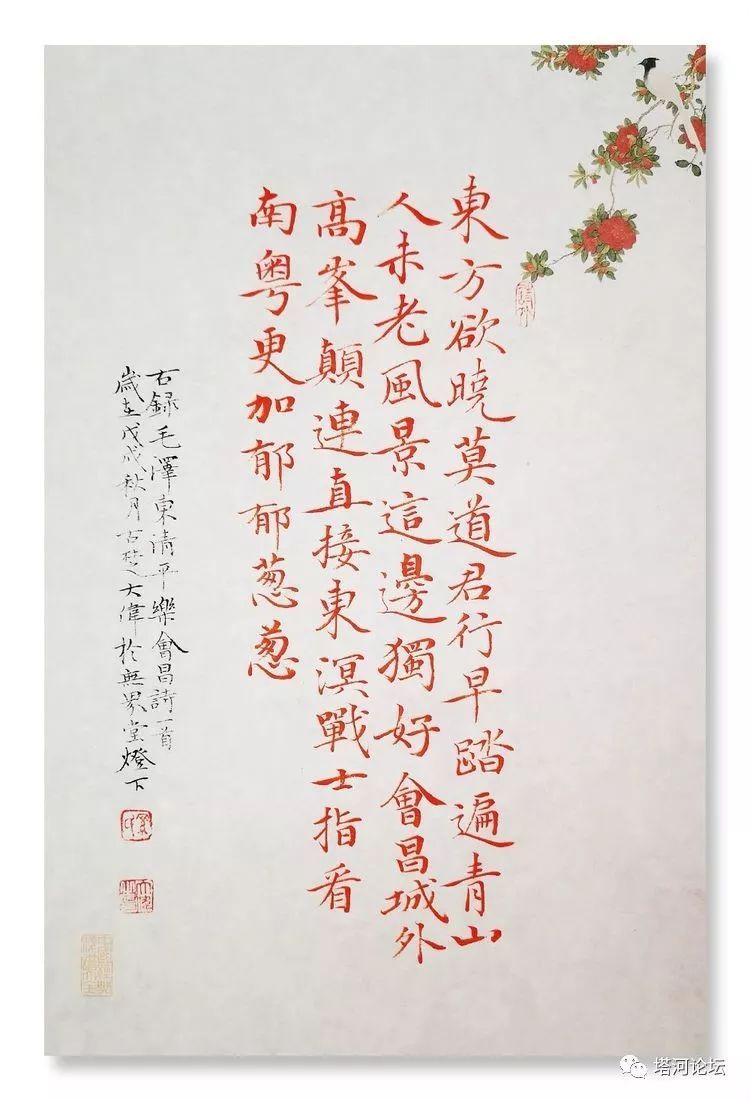 東方欲曉莫道君行早踏遍青山
人未老風景這邊獨好會昌城外
高峯顛連直接東溟戰士指看
南粵更加郁郁葱葱
右録毛澤東清平樂會昌詩一首
歲在戊戌秋月古楚大偉於無界堂燈下
塔河论坛